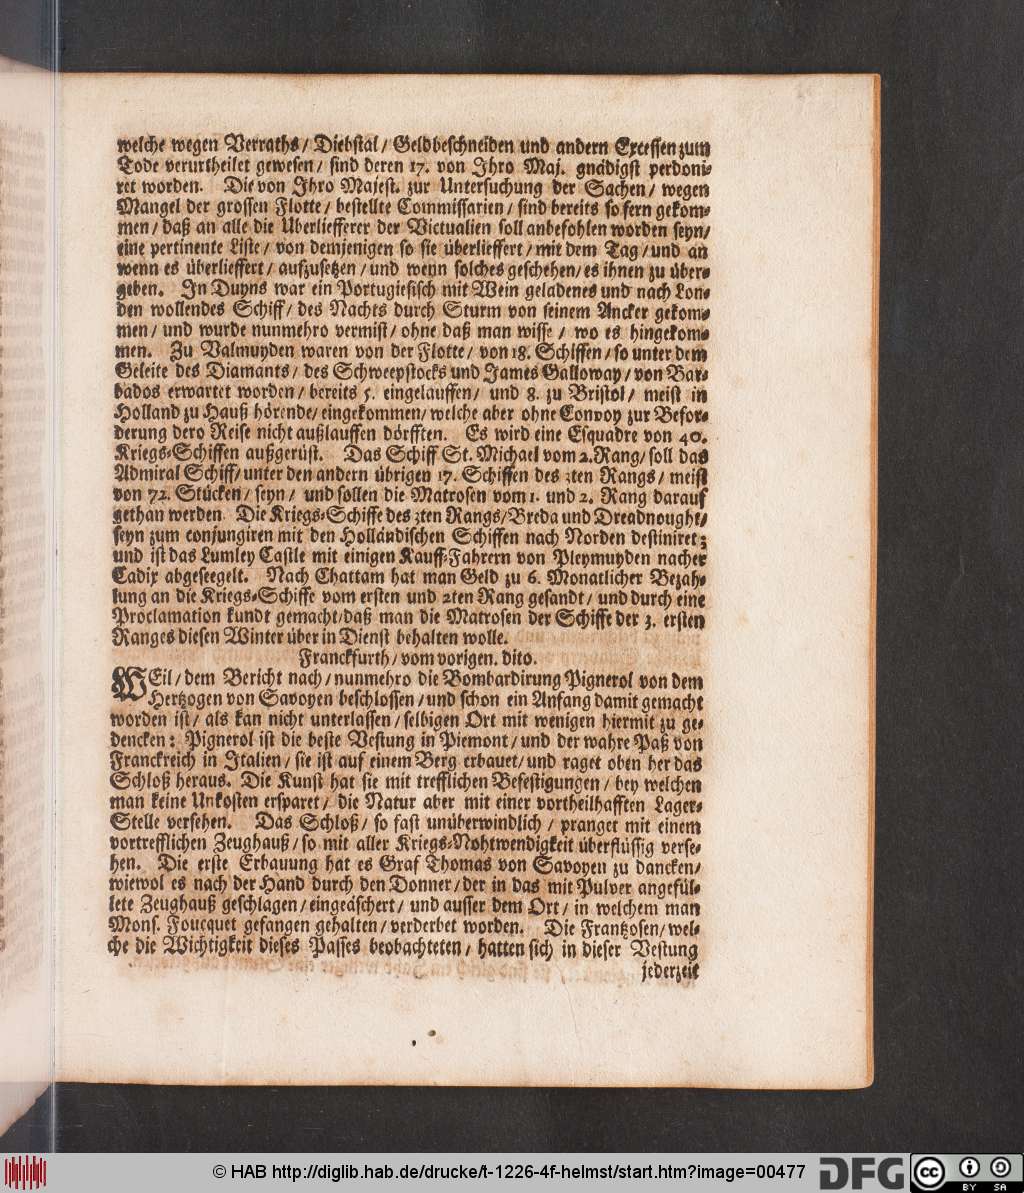 welche wegen Verraths/ Diebstal/ Geldbeschneiden und andern Excessen zum
Tode verurtheilet gewesen/ sind deren 17. von Ihro Maj. gnädigst perdoni-
ret worden. Die von Ihro Majest. zur Untersuchung der Sachen/ wegen
Mangel der grossen Flotte/ bestellte Commissarien/ sind bereits so fern gekom-
men/ daß an alle die Uberliefferer der Victualien soll anbefohlen worden seyn/
eine pertinente Liste/ von demjenigen so sie überlieffert/ mit dem Tag/ und an
wenn es überlieffert/ aufzusetzen/ und wenn solches geschehen/ es ihnen zu über-
geben. In Duyns war ein Portugiesisch mit Wein geladenes und nach Lon-
den wollendes Schiff/ des Nachts durch Sturm von seinem Ancker gekom-
men/ und wurde nunmehro vermist/ ohne daß man wisse/ wo es hingekom-
men. Zu Valmuyden waren von der Flotte/ von 18. Schiffen/ so unter dem
Geleite des Diamants/ des Schweepstocks und James Galloway/ von Bar-
bados erwartet worden/ bereits 5. eingelauffen/ und 8. zu Bristol/ meist in
Holland zu Hauß hörende/ eingekommen/ welche aber ohne Convoy zur Befor-
derung dero Reise nicht außlauffen dörfften. Es wird eine Esquadre von 40.
Kriegs-Schiffen außgerüst. Das Schiff St. Michael vom 2. Rang/ soll das
Admiral Schiff/ unter den andern übrigen 17. Schiffen des 3ten Rangs/ meist
von 72. Stücken/ seyn/ und sollen die Matrosen vom 1. und 2. Rang darauf
gethan werden. Die Kriegs-Schiffe des 3ten Rangs/ Breda und Dreadnought/
seyn zum conjungiren mit den Holländischen Schiffen nach Norden destiniret;
und ist das Lumley Castle mit einigen Kauff-Fahrern von Pleymuyden nacher
Cadix abgeseegelt. Nach Chattam hat man Geld zu 6. Monatlicher Bezah-
lung an die Kriegs-Schiffe vom ersten und 2ten Rang gesandt/ und durch eine
Proclamation kundt gemacht/ daß man die Matrosen der Schiffe der 3. ersten
Ranges diesen Winter über in Dienst behalten wolle.
Franckfurth/ vom vorigen. dito.
WEil/ dem Bericht nach/ nunmehro die Bombardirung Pignerol von dem
Hertzogen von Savoyen beschlossen/ und schon ein Anfang damit gemacht
worden ist/ als kan nicht unterlassen/ selbigen Ort mit wenigen hiermit zu ge-
dencken: Pignerol ist die beste Vestung in Piemont/ und der wahre Paß von
Franckreich in Italien/ sie ist auf einem Berg erbauet/ und raget oben her das
Schloß heraus. Die Kunst hat sie mit trefflichen Befestigungen/ bey welchen
man keine Unkosten ersparet/ die Natur aber mit einer vortheilhafften Lager-
Stelle versehen. Das Schloß/ so fast unüberwindlich/ pranget mit einem
vortrefflichen Zeughauß/ so mit aller Kriegs-Nohtwendigkeit überflüssig verse-
hen. Die erste Erbauung hat es Graf Thomas von Savoyen zu dancken/
wiewol es nach der Hand durch den Donner/ der in das mit Pulver angefül-
lete Zeughauß geschlagen/ eingeäschert/ und ausser dem Ort/ in welchem man
Mons. Foucquet gefangen gehalten/ verderbet worden. Die Frantzosen/ wel-
che die Wichtigkeit dieses Passes beobachteten/ hatten sich in dieser Vestung
jederzeit
© HAB http://diglib.hab.de/drucke/t-1226-4f-helmst/start.htm?image=00477
DFG
cc BY SA